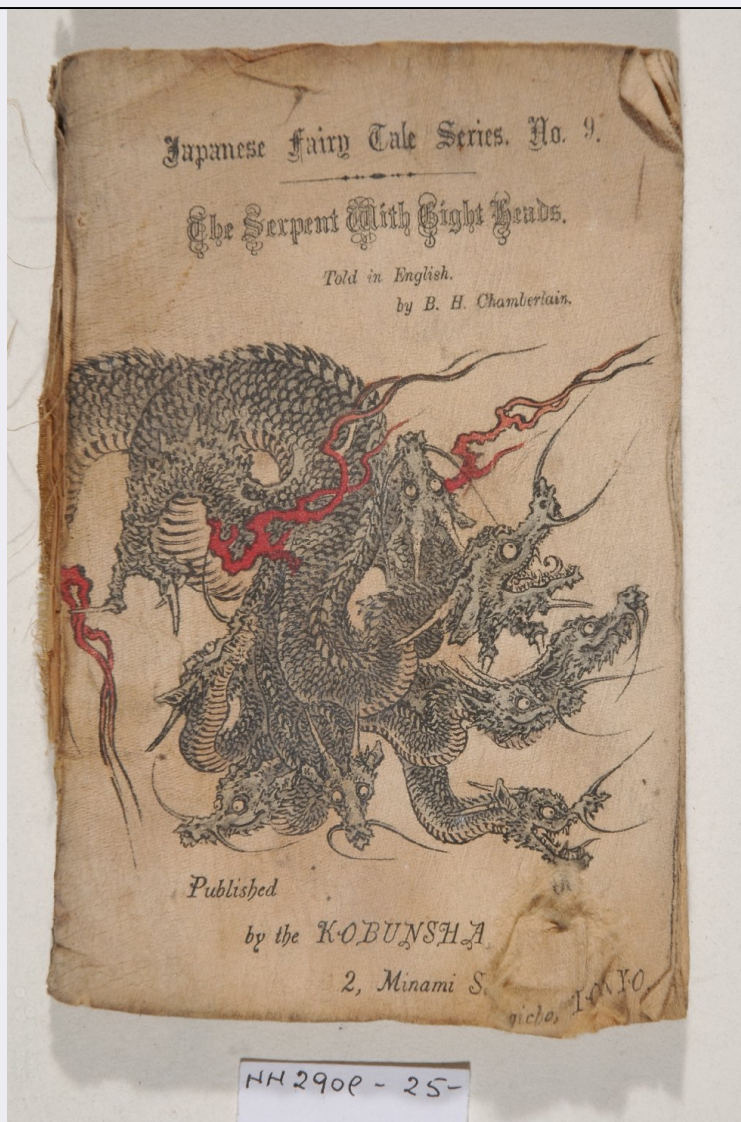 Japanese Fairy Tale Series. No. 9.
The Serpent With Eight Heads.
Told in English.
by B. H. Chamberlain.
Published
by the KOBUNSHA
2, Minami S. gicho, TOKYO
HH290e - 25-